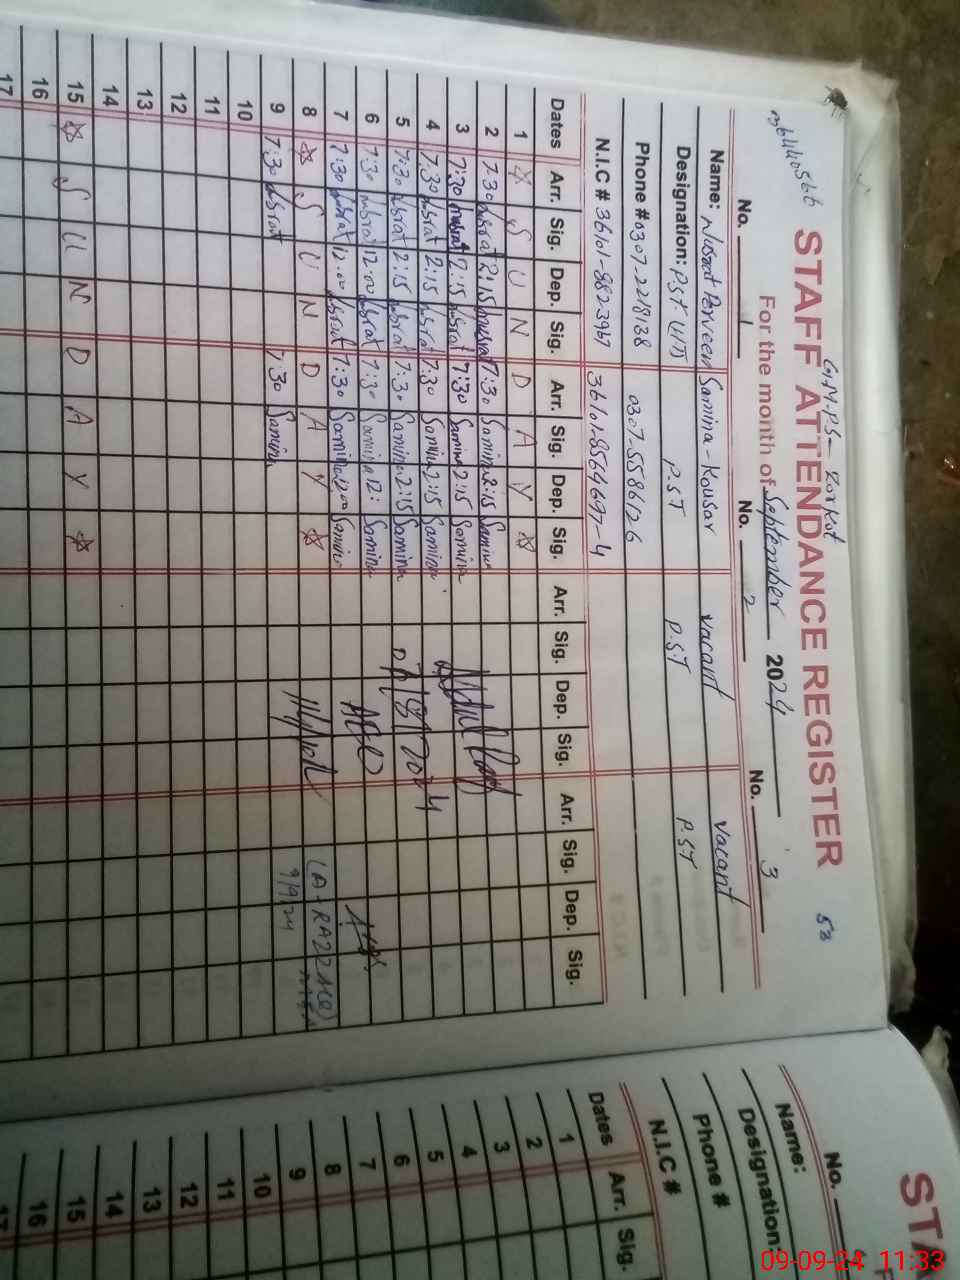 G.M.P.S- Zorkot
53
STAFF ATTENDANCE REGISTER
For the month of September 2024
No. 1 No. 2 No. 3
Name: Nusrat Perveen Samina - Kousar vacant vacant
Designation: P.S.T P.S.T P.S.T P.S.T
Phone # 0307-2218138 0307-5586126
N.I.C # 36101-8823967 36101-8569697-4
Dates Arr. Sig. Dep. Sig. Arr. Sig. Dep. Sig. Arr. Sig. Dep. Sig. Arr. Sig. Dep. Sig.
1 S U N D A Y
2 7:30 Nusrat 2:15 Nusrat 7:30 Samina 2:15 Samina
3 7:30 Nusrat 2:15 Nusrat 7:30 Samina 2:15 Samina
4 7:30 Nusrat 2:15 Nusrat 7:30 Samina 2:15 Samina
5 7:30 Nusrat 2:15 Nusrat 7:30 Samina 2:15 Samina
6 7:30 Nusrat 12:00 Nusrat 7:30 Samina 12: Samina
7 7:30 Nusrat 12:00 Nusrat 7:30 Samina 12:00 Samina
8 S U N D A Y
9 7:30 Nusrat 7:30 Samina 9/9/24
10
11
12
13
14
15 S U N D A Y
16
17
STA
No.
Name:
Designation:
Phone #
N.I.C #
Dates Arr. Sig.
1
2
3
4
5
6
7
8
9
10
11
12
13
14
15
16
17
09-09-24 11:33